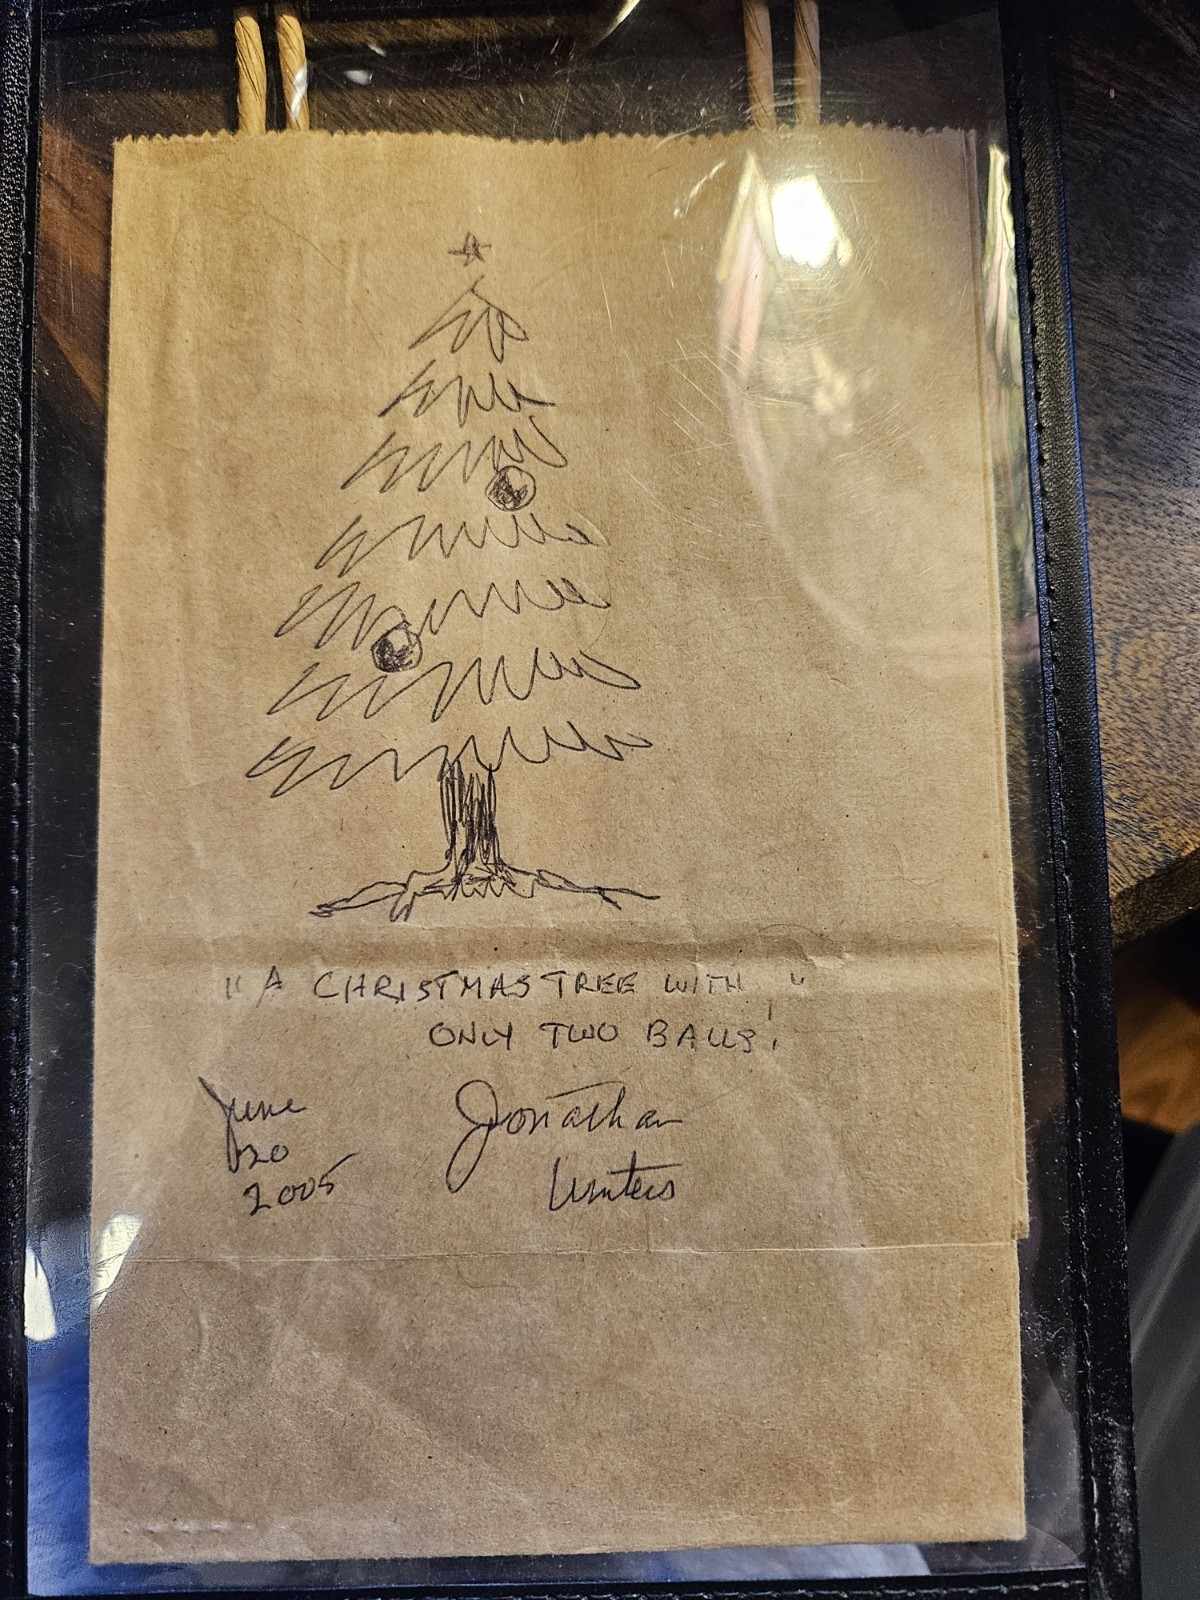 "A CHRISTMAS TREE WITH "
ONLY TWO BALLS!
June
20
2005
Jonathan
Winters